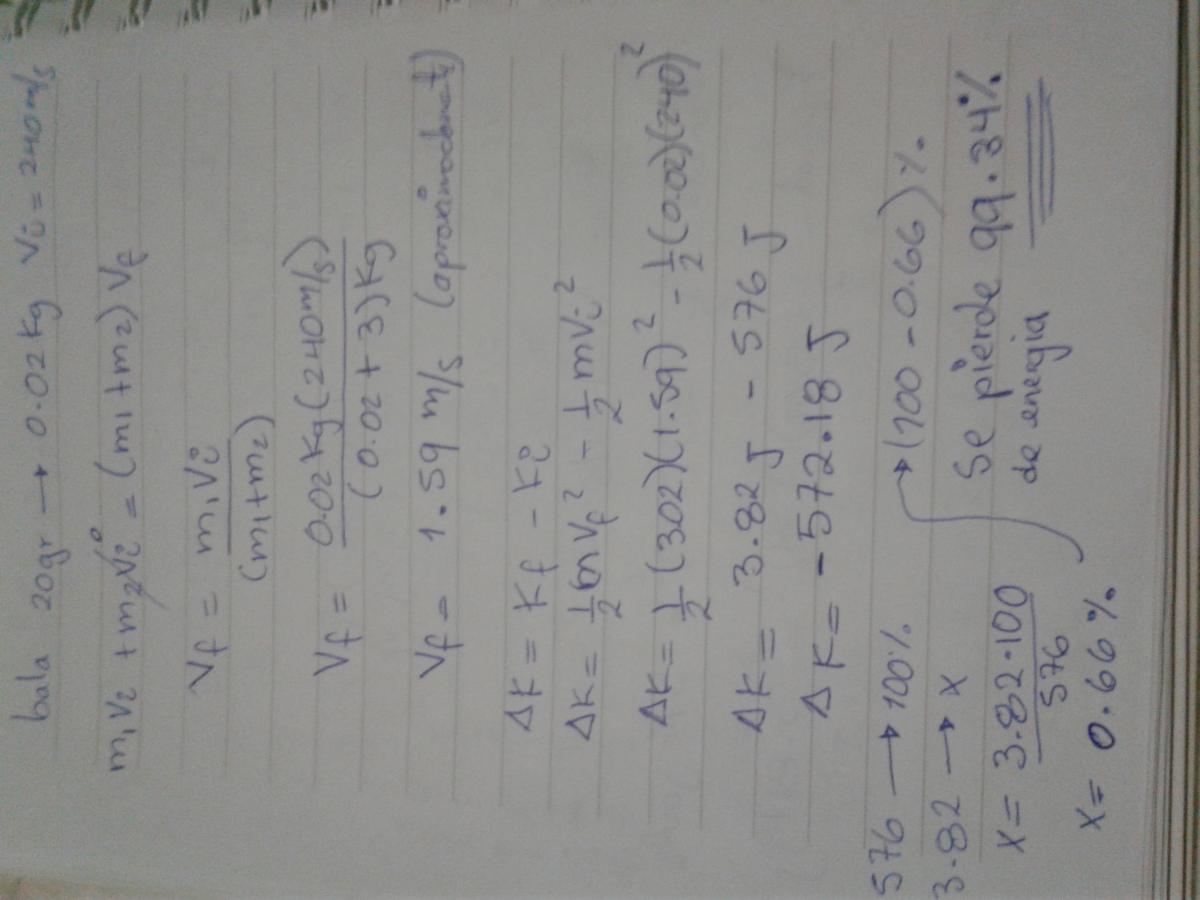 bala 20gr → 0.02 Kg Vi = 240m/s
m₁Vi + m₂Vi⁰ = (m₁ + m₂) Vf
Vf = m₁Vi / (m₁+m₂)
Vf = 0.02 Kg (240 m/s) / (0.02 + 3) Kg
Vf = 1.59 m/s (aproximadamente)
ΔK = Kf - Ki
ΔK = ½ m Vf² - ½ m Vi²
ΔK = ½ (3.02)(1.59)² - ½ (0.02)(240)²
ΔK = 3.82 J - 576 J
ΔK = -572.18 J
576 → 100%
3.82 → x
x = 3.82·100 / 576
x = 0.66%
→ (100 - 0.66) %
Se pierde 99.34%
de energia